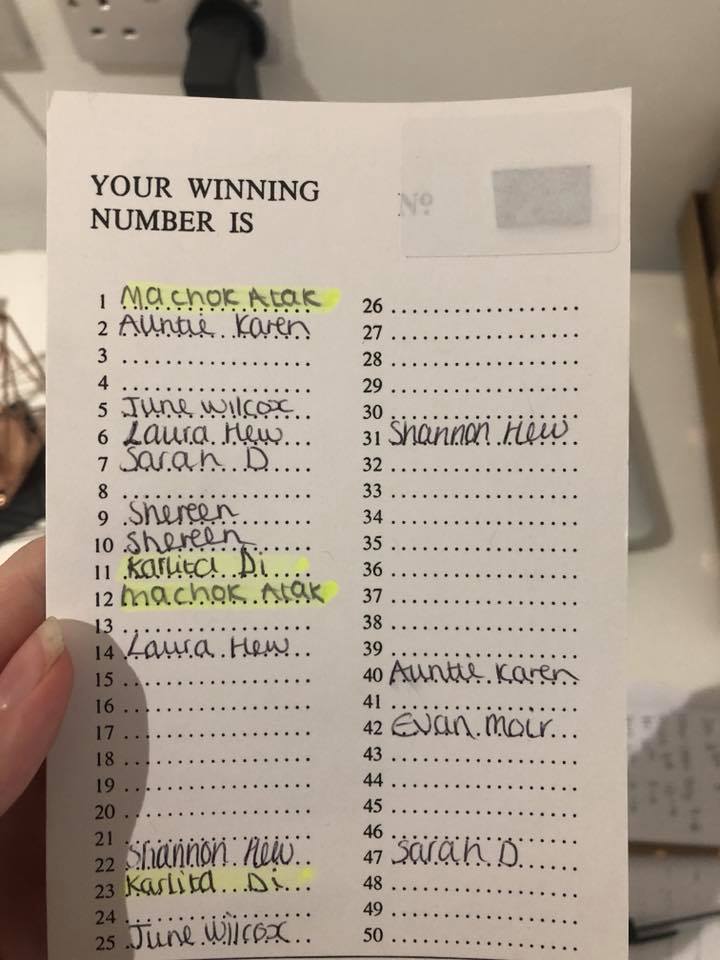 YOUR WINNING
NUMBER IS
Nº
1 Machok Atak
2 Auntie Karen
3
4
5 June Wilcox
6 Laura Hew
7 Sarah D
8
9 Shereen
10 Shereen
11 Karlita Di
12 Machok Atak
13
14 Laura Hew
15
16
17
18
19
20
21
22 Shannon Hew
23 Karlita Di
24
25 June Wilcox
26
27
28
29
30
31 Shannon Hew
32
33
34
35
36
37
38
39
40 Auntie Karen
41
42 Evan Moir
43
44
45
46
47 Sarah D
48
49
50